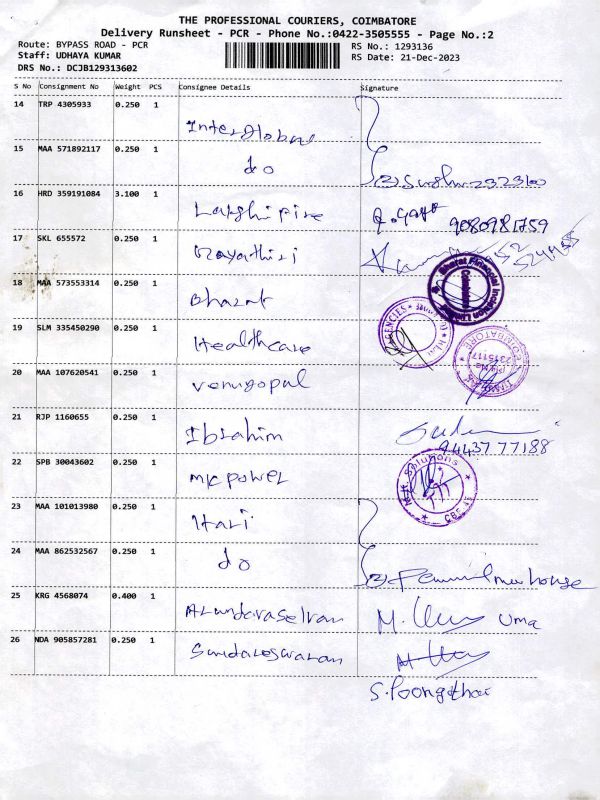 THE PROFESSIONAL COURIERS, COIMBATORE
Delivery Runsheet - PCR - Phone No.:0422-3505555 - Page No.:2
Route: BYPASS ROAD - PCR RS No.: 1293136
Staff: UDHAYA KUMAR RS Date: 21-Dec-2023
DRS No.: DCJB129313602
S No Consignment No Weight PCS Consignee Details Signature
14 TRP 4305933 0.250 1
Interglobal
15 MAA 571892117 0.250 1
do
16 HRD 359191084 3.100 1
Lakshi fire 9080981759
17 SKL 655572 0.250 1
Gayathiri
18 MAA 573553314 0.250 1
Bharat
19 SLM 335450290 0.250 1
Healthcare
20 MAA 107620541 0.250 1
Venugopal
21 RJP 1160655 0.250 1
Ibrahim
94437 77188
22 SPB 30043602 0.250 1
MK power
23 MAA 101013980 0.250 1
Hari
24 MAA 862532567 0.250 1
do
25 KRG 4568074 0.400 1
Arundaraselvan Uma
26 NDA 905857281 0.250 1
Sundareswaran